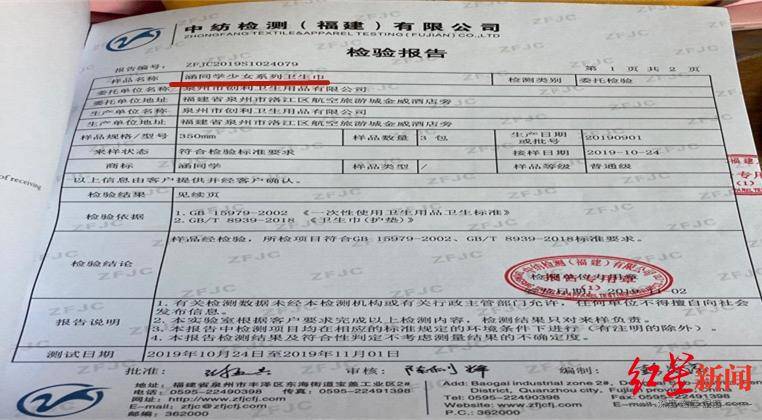 中纺检测（福建）有限公司
ZHONGFANG TEXTILE&APPAREL TESTING(FUJIAN)CO.,LTD
检验报告
报告编号: ZFJC2019S1024079 第 1 页 共 2 页
样品名称 涵同学少女系列卫生巾 检测类别 委托检验
委托单位名称 泉州市创利卫生用品有限公司
委托单位地址 福建省泉州市洛江区航空旅游城金威酒店旁
生产单位名称 泉州市创利卫生用品有限公司
生产单位地址 福建省泉州市洛江区航空旅游城金威酒店旁
样品规格/型号 350mm 样品数量 3 包 生产日期或批号 20190901
来样状态 符合检验标准要求 接样日期 2019-10-24
商标 涵同学 样品类型 / 样品等级 普通级
以上信息由客户提供并经客户确认。
检验结果 见续页
检验依据 1.GB 15979-2002 《一次性使用卫生用品卫生标准》
2.GB/T 8939-2018 《卫生巾(护垫)》
检验结论 样品经检验，所检项目符合GB 15979-2002、GB/T 8939-2018标准要求。
报告专用章
(1)
报告说明 1.有关检测数据未经本检测机构或有关行政主管部门允许，任何单位不得擅自向社会
发布信息。
2.本实验室根据客户要求完成以上检测内容，检测结果只对来样负责。
3.本报告中检测项目均在相应的标准规定的环境条件下进行（有注明的除外）。
4.本报告检测结果及符合性判定不考虑测量结果的不确定度。
测试日期 2019年10月24日至2019年11月01日
批准: 审核: 编制:
地址: 福建省泉州市丰泽区东海街道宝盖工业区2#
电话: 0595-22490398 传真: 0595-22491398
网址: http://www.zfjcfj.com
E-mail: zfjc@zfjcfj.com
邮编: 362000
Add: Baogai industrial zone 2#,
District, Quanzhou city, Fujian province
Tel: 0595-22490398
E-mail:
P.C.: 362000
of receiving
红星新闻